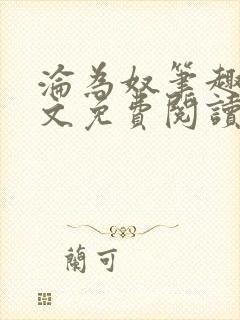 淪為奴筆趣
文免費閱讀
蘭可